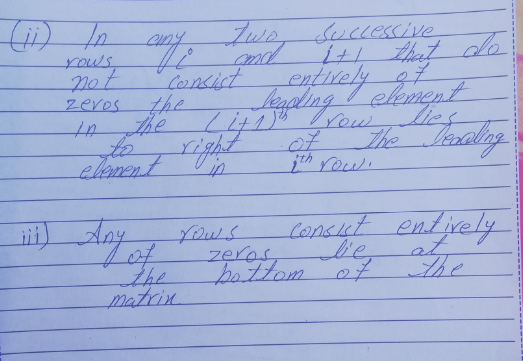 (ii) In any two successive
rows, i and i+1 that do
not consist entirely of
zeros the leading element
in the (i+1)th row lies
to right of the leading
element in ith row.
iii) Any rows consist entirely
of zeros lie at
the bottom of the
matrix